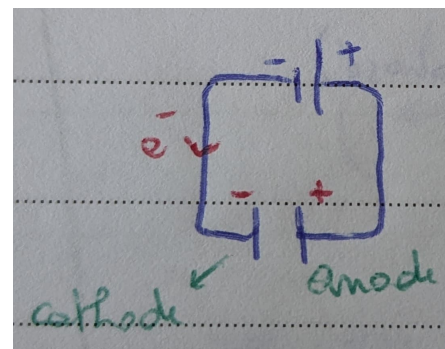 - +
e-
- +
cathode anode